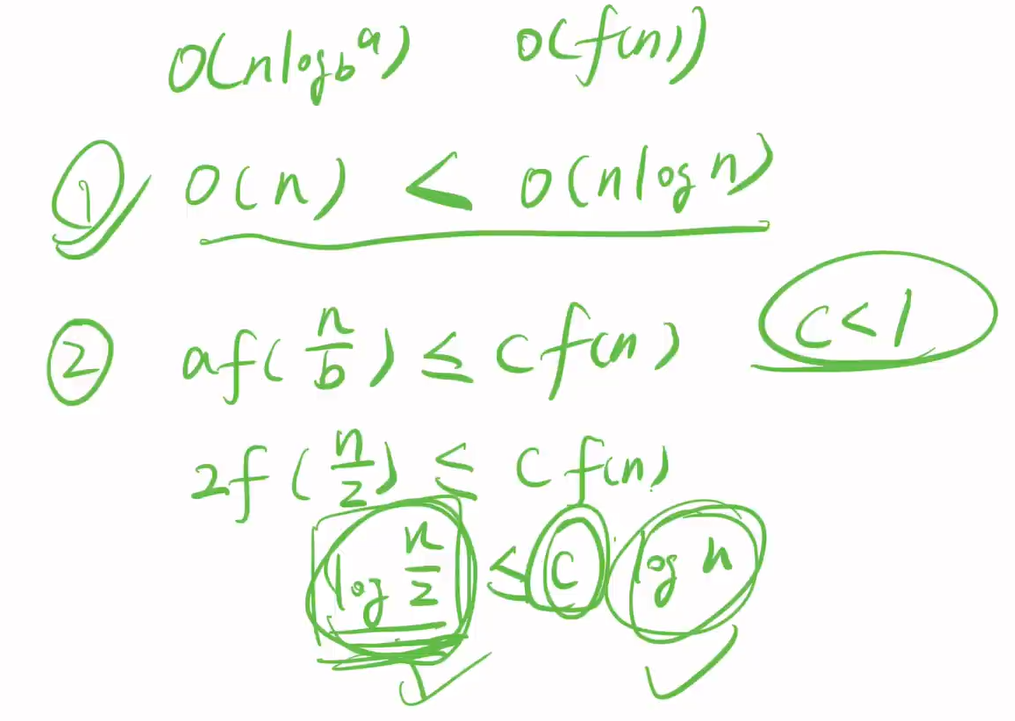 O(nlog_b^a) O(f(n))
① O(n) < O(nlogn)
② af(n/b) ≤ cf(n) c<1
2f(n/2) ≤ cf(n)
log n/2 ≤ c log n